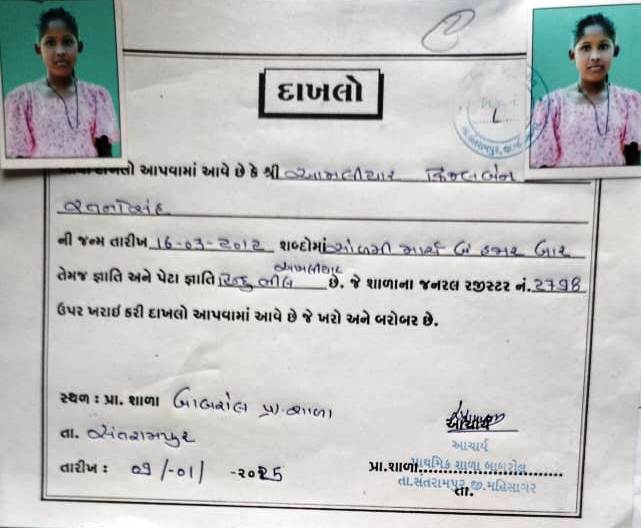 દાખલો
દાખલો આપવામાં આવે છે કે શ્રી આમલીયાર કિંજલબેન
રતનસિંહ
ની જન્મ તારીખ 16-03-2012 શબ્દોમાં સોળમી માર્ચ બે હજાર બાર
તેમજ જ્ઞાતિ અને પેટા જ્ઞાતિ હિન્દુ ભીલ આમલીયાર છે. જે શાળાના જનરલ રજીસ્ટર નં. 2798
ઉપર ખરાઈ કરી દાખલો આપવામાં આવે છે જે ખરો અને બરોબર છે.
સ્થળ : પ્રા. શાળા બાબરોલ પ્રા. શાળા
તા. સંતરામપુર
આચાર્ય
આચાર્ય
તારીખ : 09/-01/ -2025
પ્રા.શાળા પ્રાથમિક શાળા બાબરોલ
તા.સંતરામપુર, જી.મહિસાગર
તા.